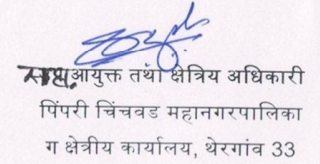 सहा.आयुक्त तथा क्षेत्रिय अधिकारी
पिंपरी चिंचवड महानगरपालिका
ग क्षेत्रीय कार्यालय, थेरगांव 33